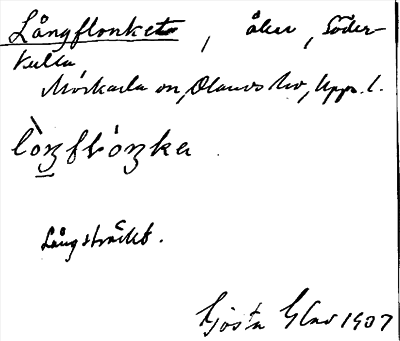 Långflonket, åker, Söder-
kulla
Mörkarla sn, Olands hd, Uppr. l.
lòŋflóŋka
Långsträckt.
Gösta Glas 1907